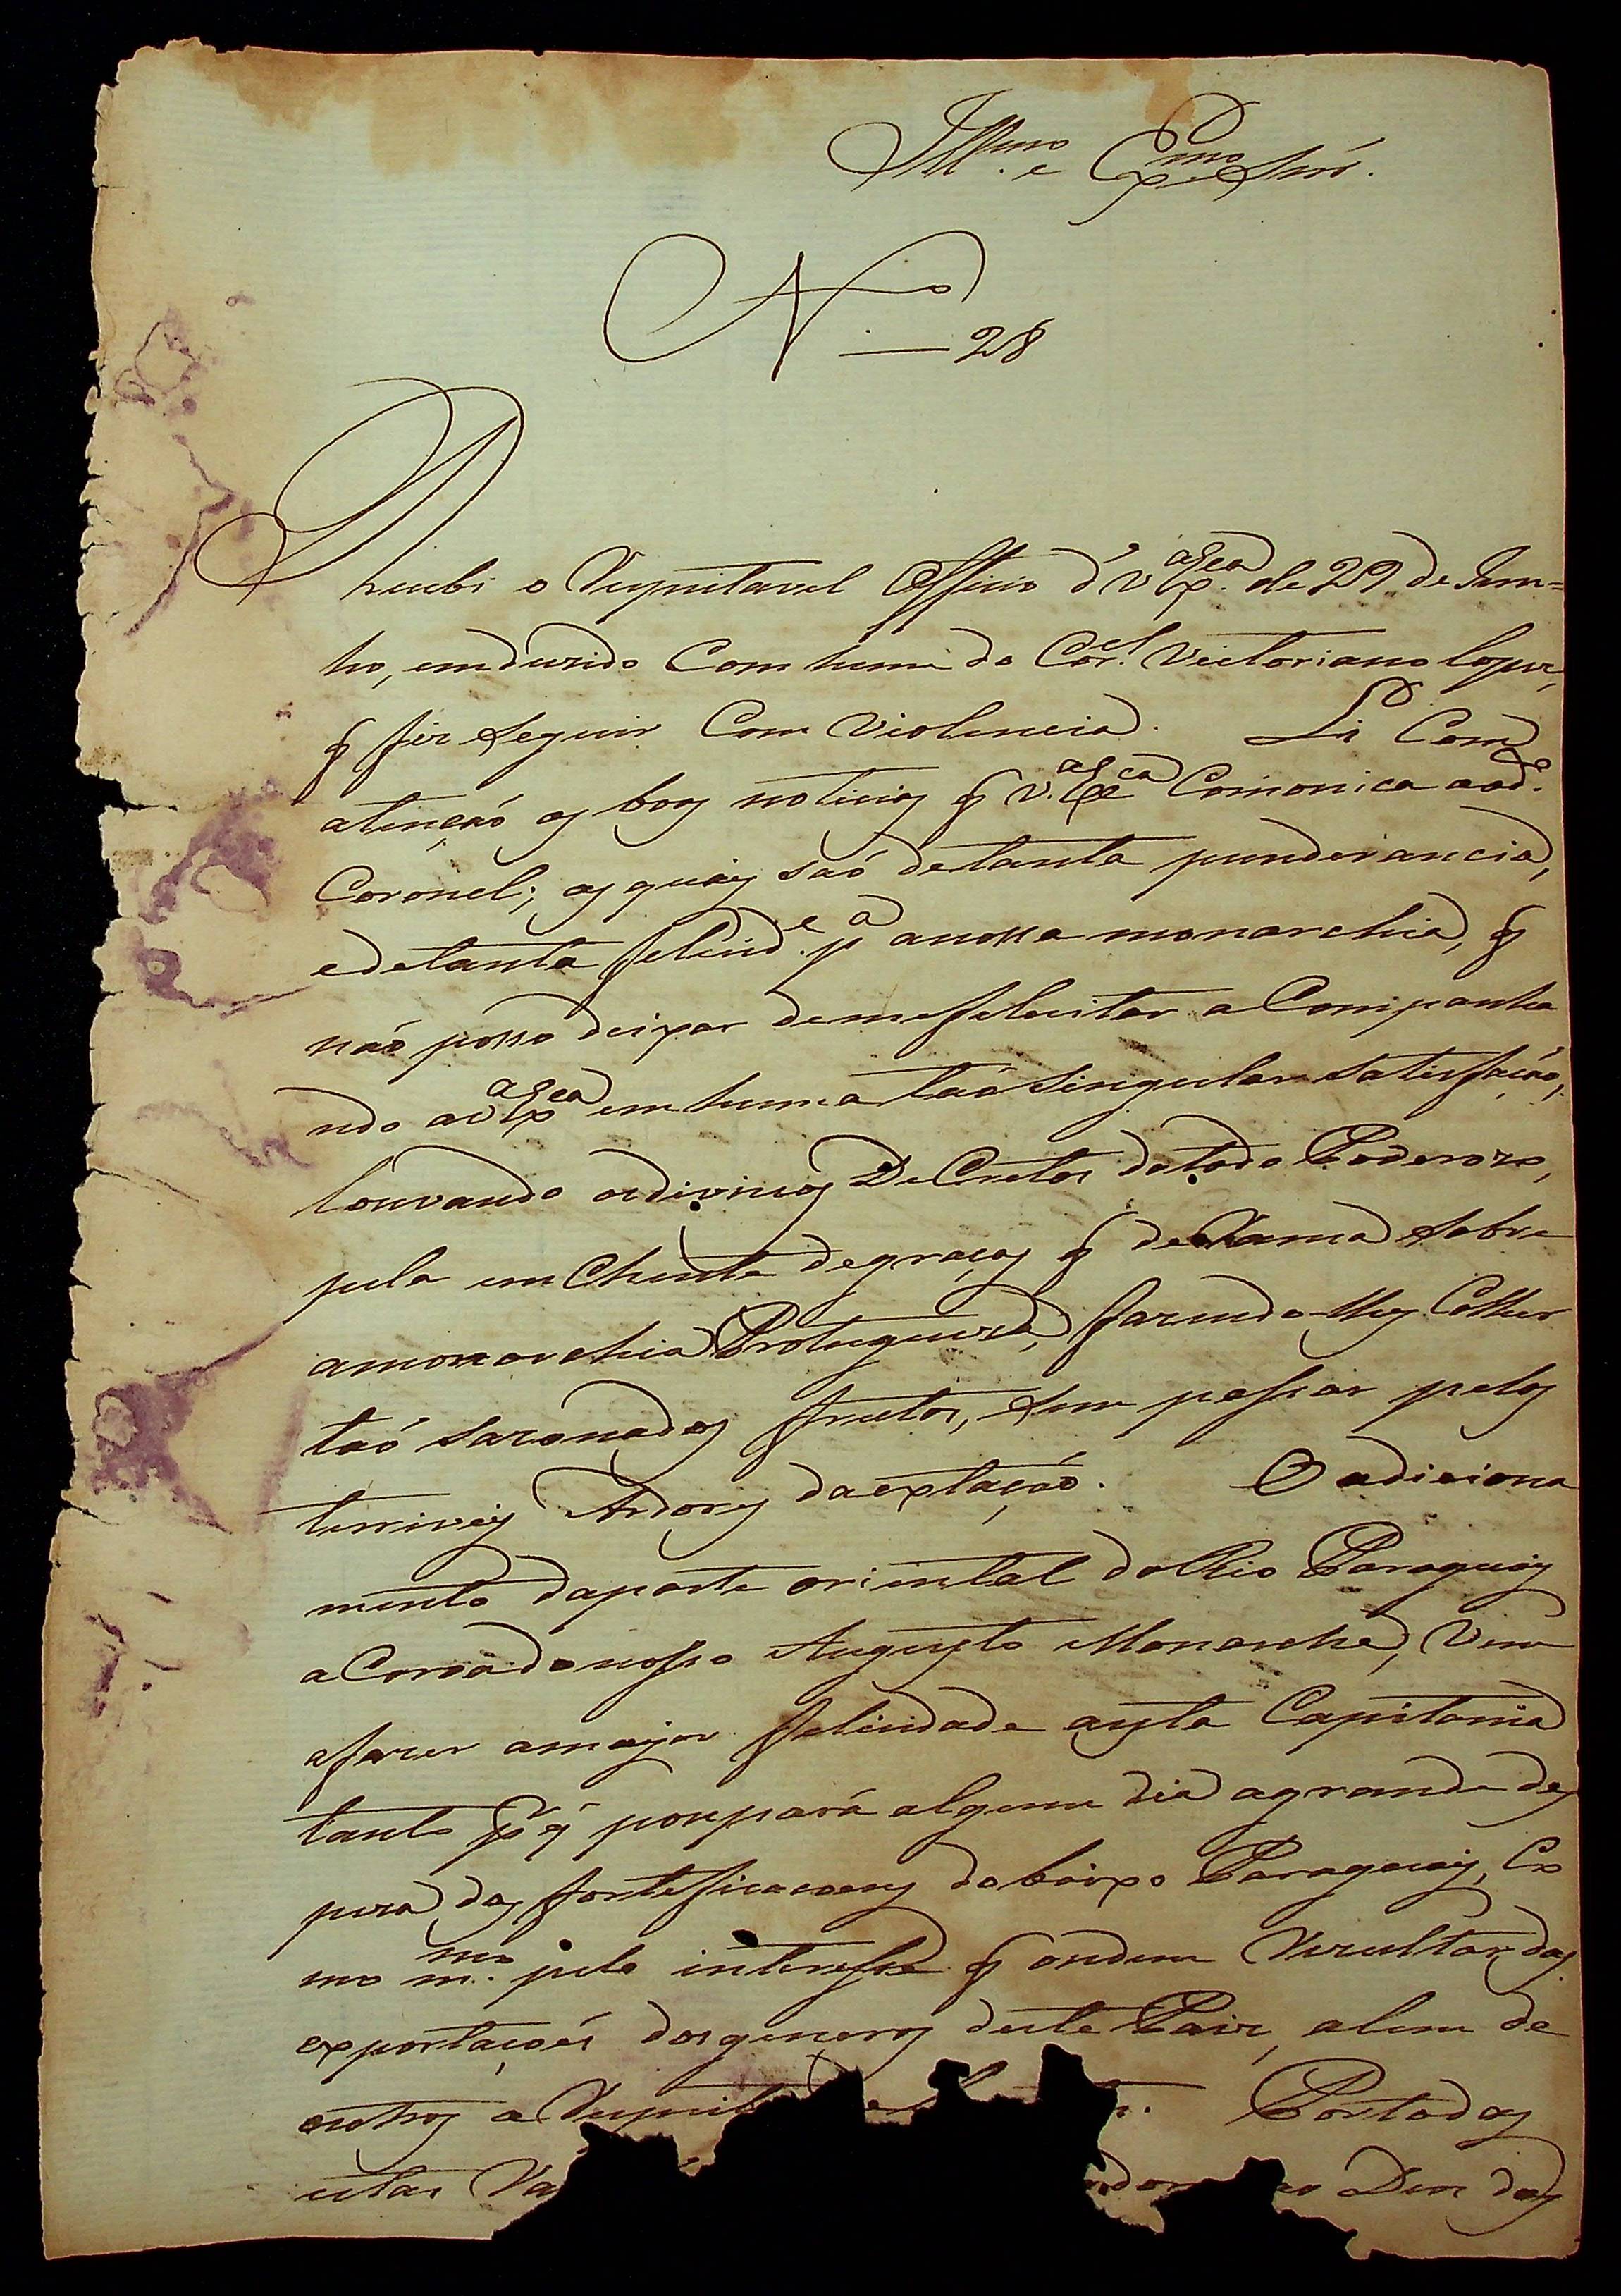 Ill.mo e Ex.mo Snr.
N.o 28
Recebi o Respeitavel Officio d' V.a Ex.ca de 29 de Jun=
ho, comduzido Com hum do Cor.el Victoriano Lopez,
q fiz seguir Com Violencia. Li Com
atençaõ as boas noticias q V.a Ex.ca Comonica aod.o
Coronel; as quais saõ detanta ponderancia,
edetanta felicid.e p.a anossa monarchia, q
naõ posso deixar demefelecitar aCompanha
ndo aV.a Ex.ca emhuma taõ singular satisfaçaõ,
louvando osdivinos DeCretos dotodo Poderozo,
pela emChente degraças q deRama sobre
amonarchia Protugueza, fazendo-lhes Colher
taõ sazonados fructos, sem passar pelos
terriveis Ardores daextaçaõ. O adiciona
mento daparte oriental doRio Paraguay
aCoroa donosso Augusto Monarcha, Vem
afazer amayor felicidade aesta Capitania
tanto p.r q̃ poupará algum dia agrande des
peza das fortificacoens dobaixo Paraguay, Co
mo m.mo pelo interesse q ondem Rezultar das
exportaçoés dosgeneros deste Paiz, alem de
outros a Respeit
Portodas
estas Va Deos das